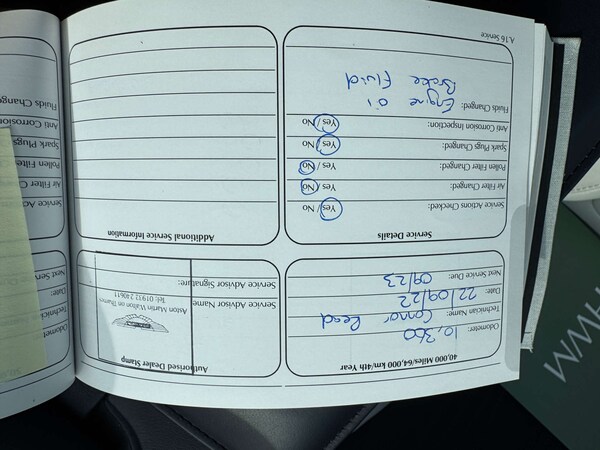 40,000 Miles/64,000 km/4th Year
Odometer: 10,360
Technician Name: Connor Read
Date: 22/09/22
Next Service Due: 09/23
Authorised Dealer Stamp
Aston Martin Walton on Thames
Tel: 01932 240611
Service Advisor Name
Service Advisor Signature:
Service Details
Service Actions Checked: Yes / No
Air Filter Changed: Yes / No
Pollen Filter Changed: Yes / No
Spark Plugs Changed: Yes / No
Anti Corrosion Inspection: Yes / No
Fluids Changed: Engine oil
Brake Fluid
Additional Service Information
A.16 Service
Odomet
Technic
Date:
Next Serv
Service Ac
Air Filter C
Pollen Filte
Spark Plugs
Anti Corrosion
Fluids Change